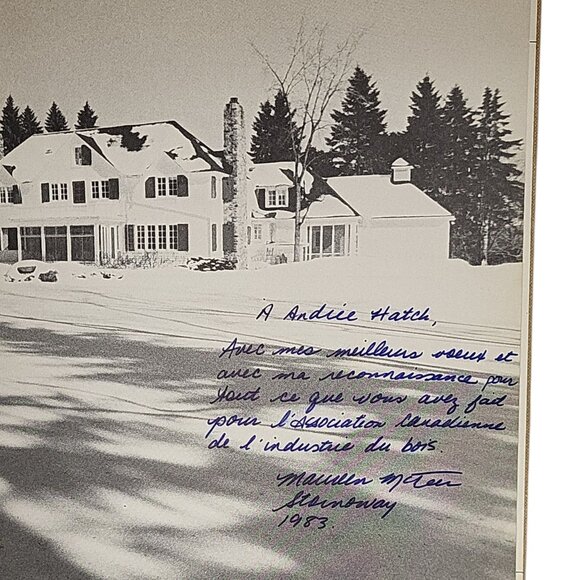 A Andrée Hatch,
Avec mes meilleurs voeux et
avec ma reconnaissance pour
tout ce que vous avez fad
pour l'Association Canadienne
de l'industrie du bois.
Maureen McTeer
Stornoway
1983.